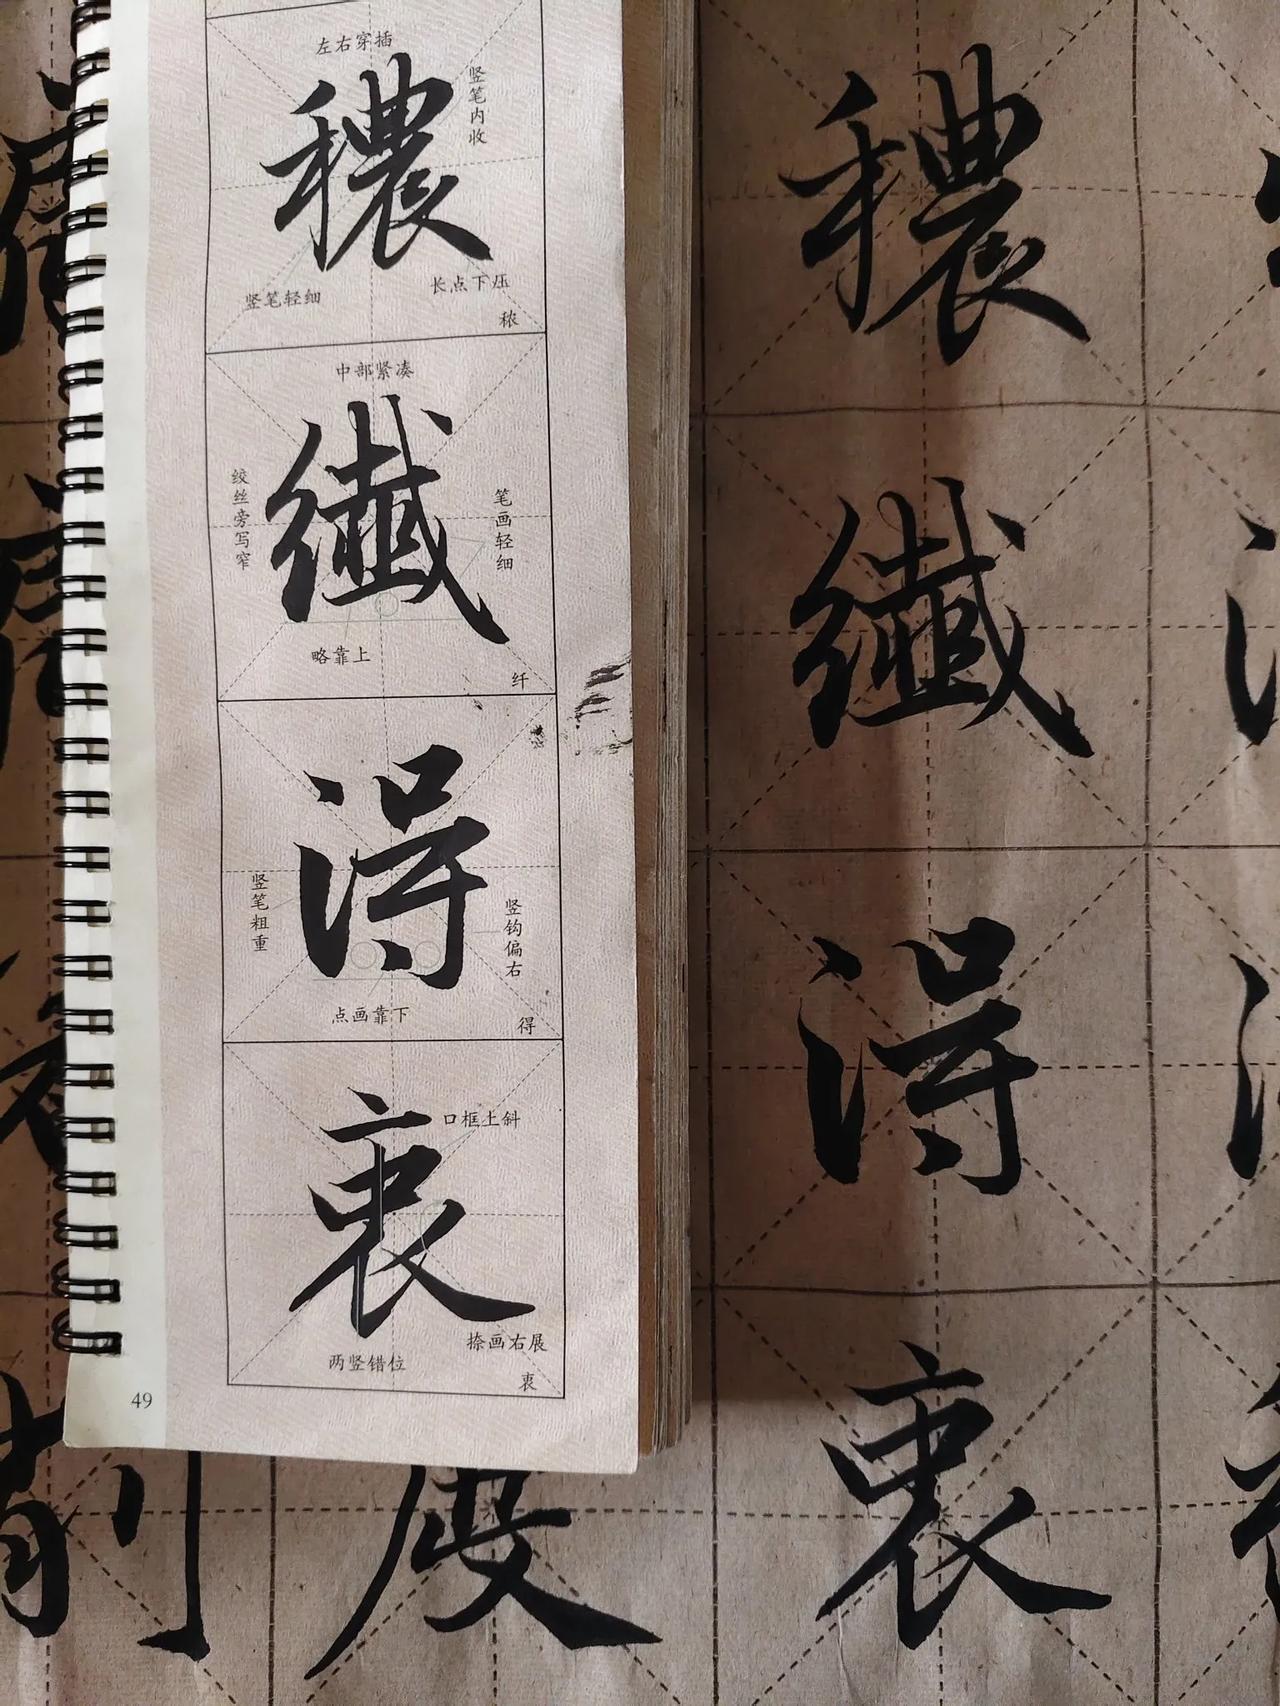 左右穿插
竖笔内收
穠
竖笔轻细
长点下压
秾
中部紧凑
绞丝旁写窄
纖
笔画轻细
略靠上
纤
得
竖笔粗重
竖钩偏右
点画靠下
得
口框上斜
衷
捺画右展
两竖错位
衷
49
穠
纖
得
衷